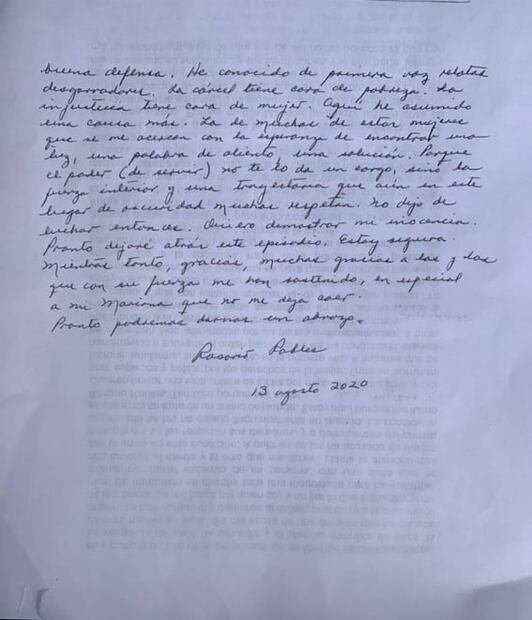 buena defensa. He conocido de primera voz relatos
desgarradores. La cárcel tiene cara de pobreza. La
injusticia tiene cara de mujer. Aquí he asumido
una causa más. La de muchas de estas mujeres
que se me acercan con la esperanza de encontrar una
luz, una palabra de aliento, una solución. Porque
el poder (de servir) no te lo da un cargo, sino la
fuerza interior y una trayectoria que aún en este
lugar de oscuridad muchas respetan. No dejo de
luchar entonces. Quiero demostrar mi inocencia.
Pronto dejaré atrás este episodio. Estoy segura.
Mientras tanto, gracias, muchas gracias a las y los
que con su fuerza me han sostenido, en especial
a mi Mariana que no me deja caer.
Pronto podremos darnos un abrazo.
Rosario Robles
13 agosto 2020